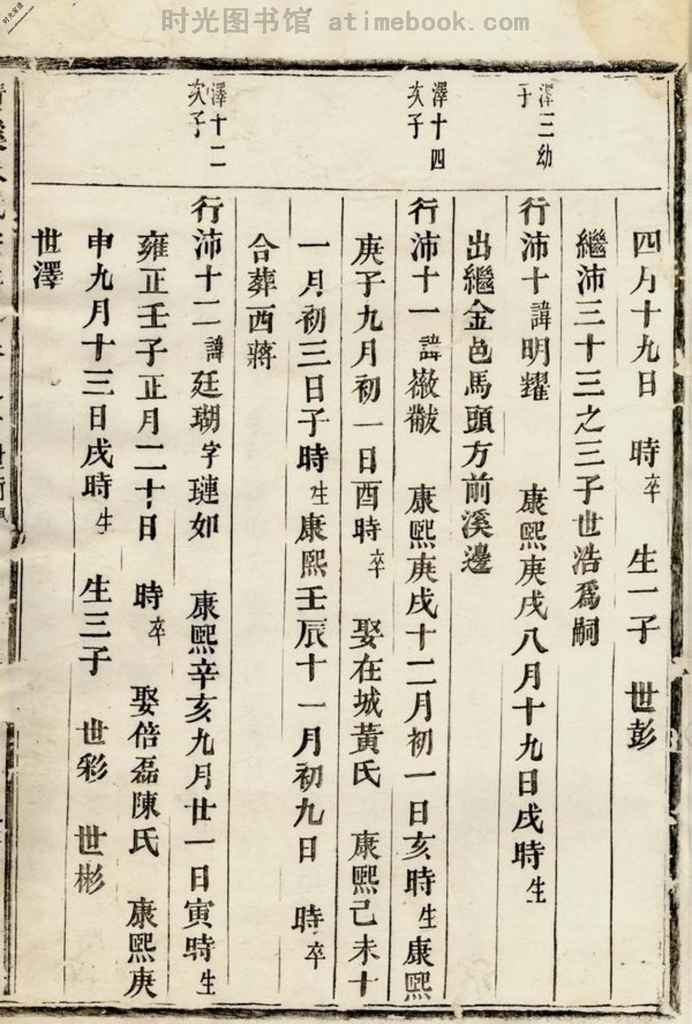 时光图书馆 atimebook.com
澤三幼
子
四月十九日　時卒　生一子　世彭
繼沛三十三之三子世浩爲嗣
行沛十諱明耀　康熙庚戌八月十九日戌時生
出繼金邑馬頭方前溪邊
澤十四
次子
行沛十一諱　康熙庚戌十二月初一日亥時生康熙
庚子九月初一日酉時卒　娶在城黃氏　康熙己未十
一月初三日子時生康熙壬辰十一月初九日　時卒
合葬西蔣
澤十二
次子
行沛十二諱廷瑚字璉如　康熙辛亥九月廿一日寅時生
雍正壬子正月二十日　時卒　娶倍磊陳氏　康熙庚
申九月十三日戌時生　生三子　世彩　世彬
世澤